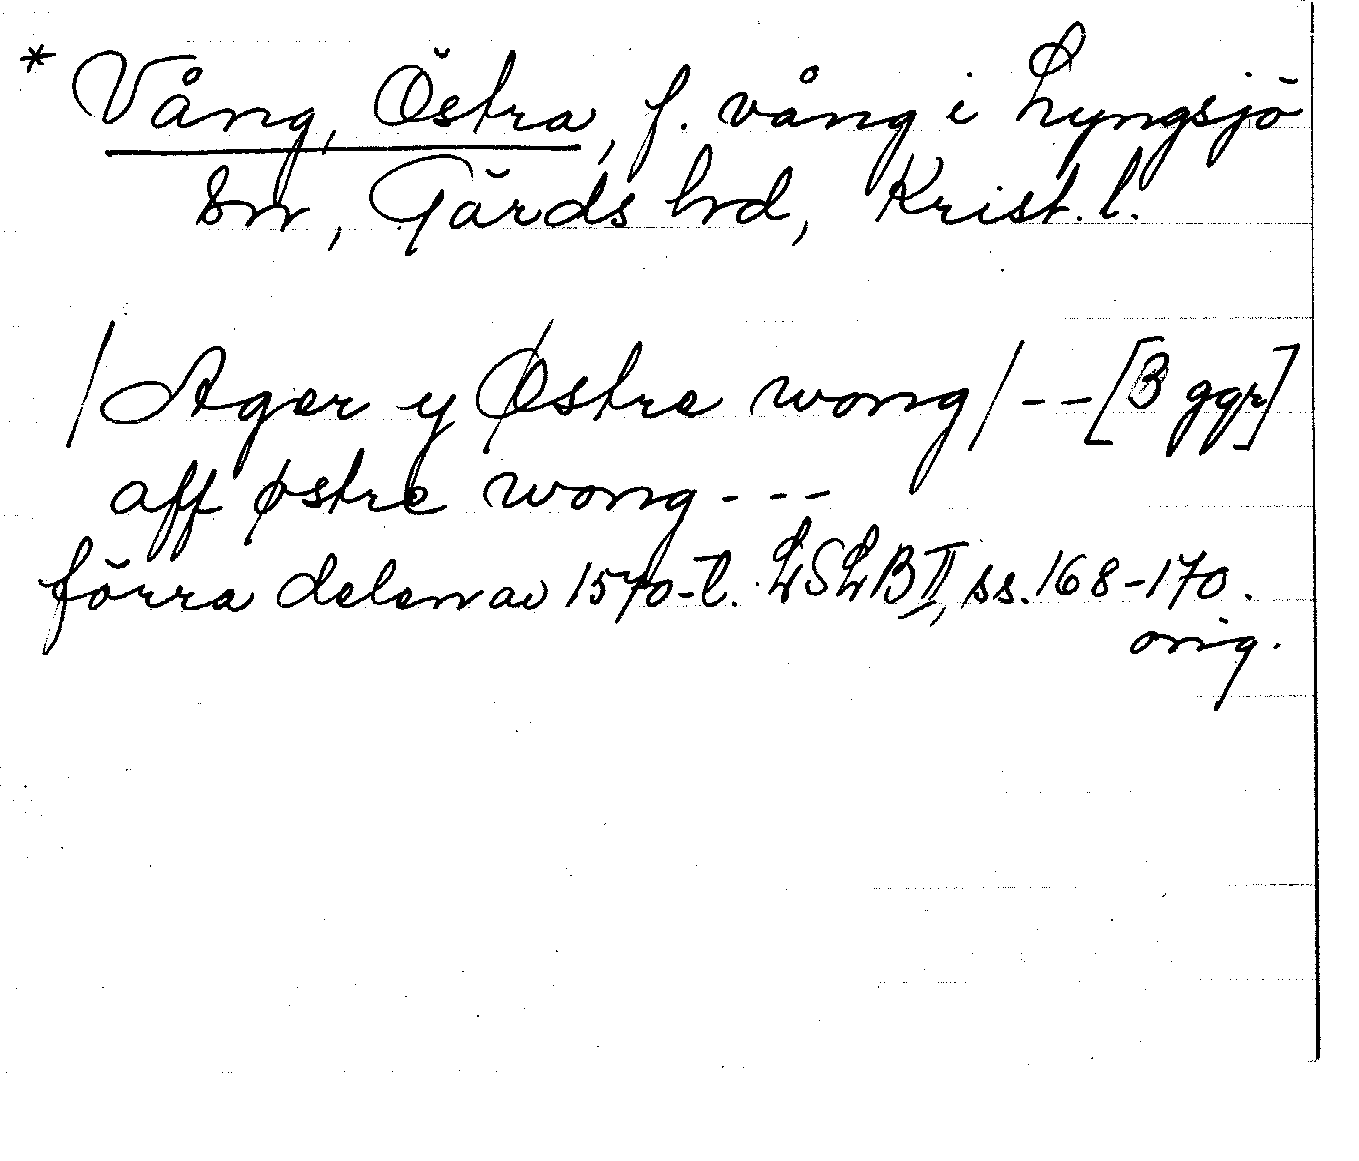 * Vång, Östra, f. vång i Lyngsjö
sn, Gärds hd, Krist. l.
/Ager y Østre wong/ -- [3 ggr]
aff østre wong ---
förra delen av 1570-t. LSLB II, ss. 168-170.
orig.